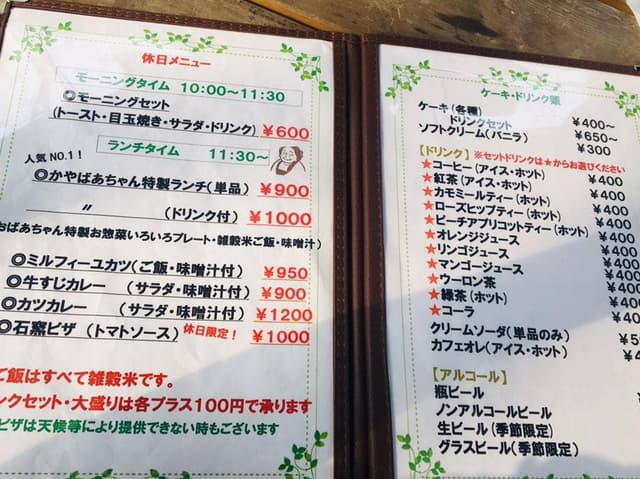 休日メニュー
モーニングタイム 10:00～11:30
◎モーニングセット
(トースト・目玉焼き・サラダ・ドリンク) ¥600
ランチタイム 11:30～
人気NO.1!
◎かやばあちゃん特製ランチ(単品) ¥900
〃 (ドリンク付) ¥1000
おばあちゃん特製お惣菜いろいろプレート・雑穀米ご飯・味噌汁)
◎ミルフィーユカツ(ご飯・味噌汁付) ¥950
◎牛すじカレー (サラダ・味噌汁付) ¥900
◎カツカレー (サラダ・味噌汁付) ¥1200
◎石窯ピザ (トマトソース) 休日限定! ¥1000
ご飯はすべて雑穀米です。
ンクセット・大盛りは各プラス100円で承ります
ピザは天候等により提供できない時もございます
ケーキ・ドリンク類
ケーキ(各種) ¥400～
ドリンクセット ¥650～
ソフトクリーム(バニラ) ¥300
【ドリンク】 ※セットドリンクは★からお選びください
★コーヒー(アイス・ホット) ¥400
★紅茶(アイス・ホット) ¥400
★カモミールティー(ホット) ¥400
★ローズヒップティー(ホット) ¥400
★ピーチアプリコットティー(ホット) ¥400
★オレンジジュース ¥400
★リンゴジュース ¥400
★マンゴージュース ¥400
★ウーロン茶 ¥400
★緑茶(ホット) ¥400
★コーラ ¥40
クリームソーダ(単品のみ) ¥5
カフェオレ(アイス・ホット) ¥
【アルコール】
瓶ビール
ノンアルコールビール
生ビール(季節限定)
グラスビール(季節限定)